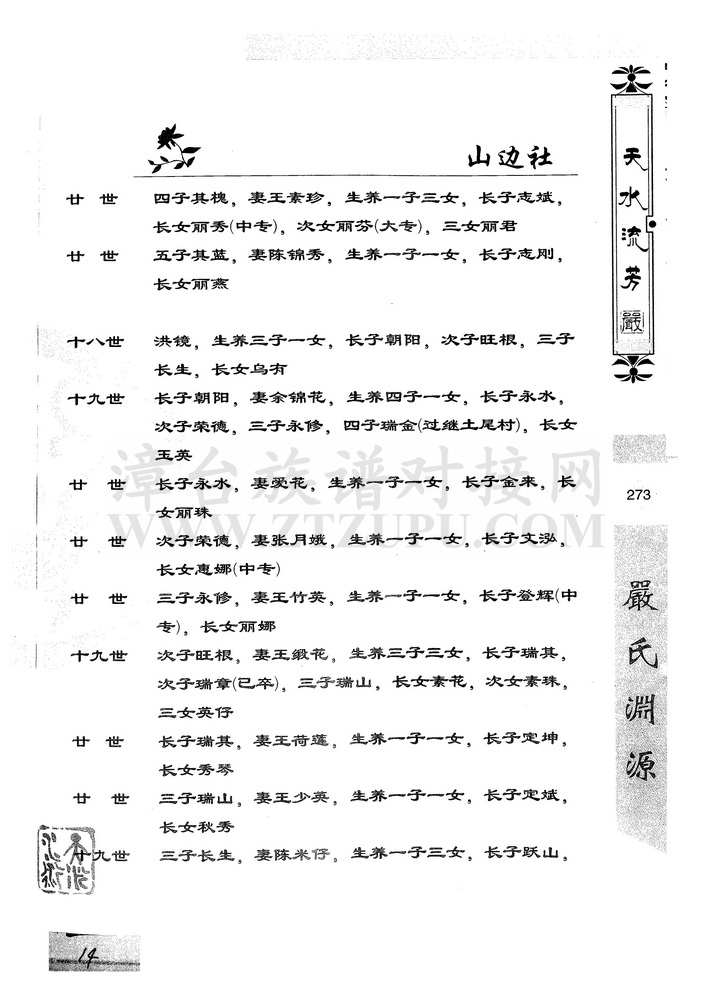 山边社
廿 世 四子其槐，妻王素珍，生养一子三女，长子志斌，
长女丽秀(中专)，次女丽芬(大专)，三女丽君
廿 世 五子其蓝，妻陈锦秀，生养一子一女，长子志刚，
长女丽燕
十八世 洪镜，生养三子一女，长子朝阳，次子旺根，三子
长生，长女乌有
十九世 长子朝阳，妻余锦花，生养四子一女，长子永水，
次子荣德，三子永修，四子瑞金(过继土尾村)，长女
玉英
廿 世 长子永水，妻爱花，生养一子一女，长子金来，长
女丽珠
廿 世 次子荣德，妻张月娥，生养一子一女，长子文泓，
长女惠娜(中专)
廿 世 三子永修，妻王竹英，生养一子一女，长子登辉(中
专)，长女丽娜
十九世 次子旺根，妻王缎花，生养三子三女，长子瑞其，
次子瑞章(已卒)，三子瑞山，长女素花，次女素珠，
三女英仔
廿 世 长子瑞其，妻王荷莲，生养一子一女，长子定坤，
长女秀琴
廿 世 三子瑞山，妻王少英，生养一子一女，长子定斌，
长女秋秀
十九世 三子长生，妻陈米仔，生养一子三女，长子跃山，
天水流芳
嚴
273
嚴氏淵源
14
漳台族谱对接网
WWW.ZTZUPU.COM